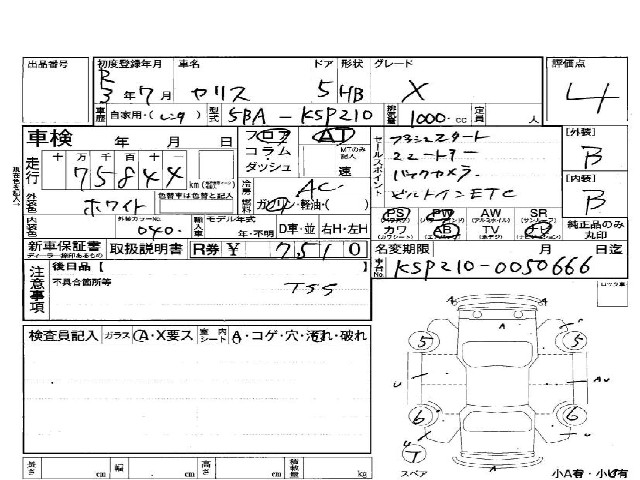 出品番号 初度登録年月 車名 ドア 形状 グレード 評価点
R3年7月 ヤリス 5 HB X 4
車歴 自家用・(レンタ) 型式 5BA-KSP210 排気量 1000 cc 定員 人
車検 年 月 日 フロア AT [外装]
コラム MTのみ記入 B
ダッシュ 速
走行 十 万 千 百 十 一
75844 km
セールスポイント
プッシュスタート
スマートキー
バックカメラ
ビルトインETC
[内装]
B
色替車は色替と記入
外装色 ホワイト 冷房 AC
燃料 ガソリン・軽油・( )
PS PW AW SR
カワ AB TV ナビ
純正品のみ丸印
内装色 外装カラーNo. 040. 輸入車 モデル年式 年・不明 D車・並 右H・左H
新車保証書 取扱説明書 R券 ¥ 7510
ディーラー捺印あるもの
名変期限 月 日迄
車台No. KSP210-0050666
注意事項
後日品【 】
不具合箇所等 TSS
検査員記入 ガラス A・X要ス 室内シート A・コゲ・穴・汚れ・破れ
A
A
5 5
U AU
6 6
X
U
T
スペア 小A有・小U有
長さ cm 幅 cm 高さ cm 積載量 kg